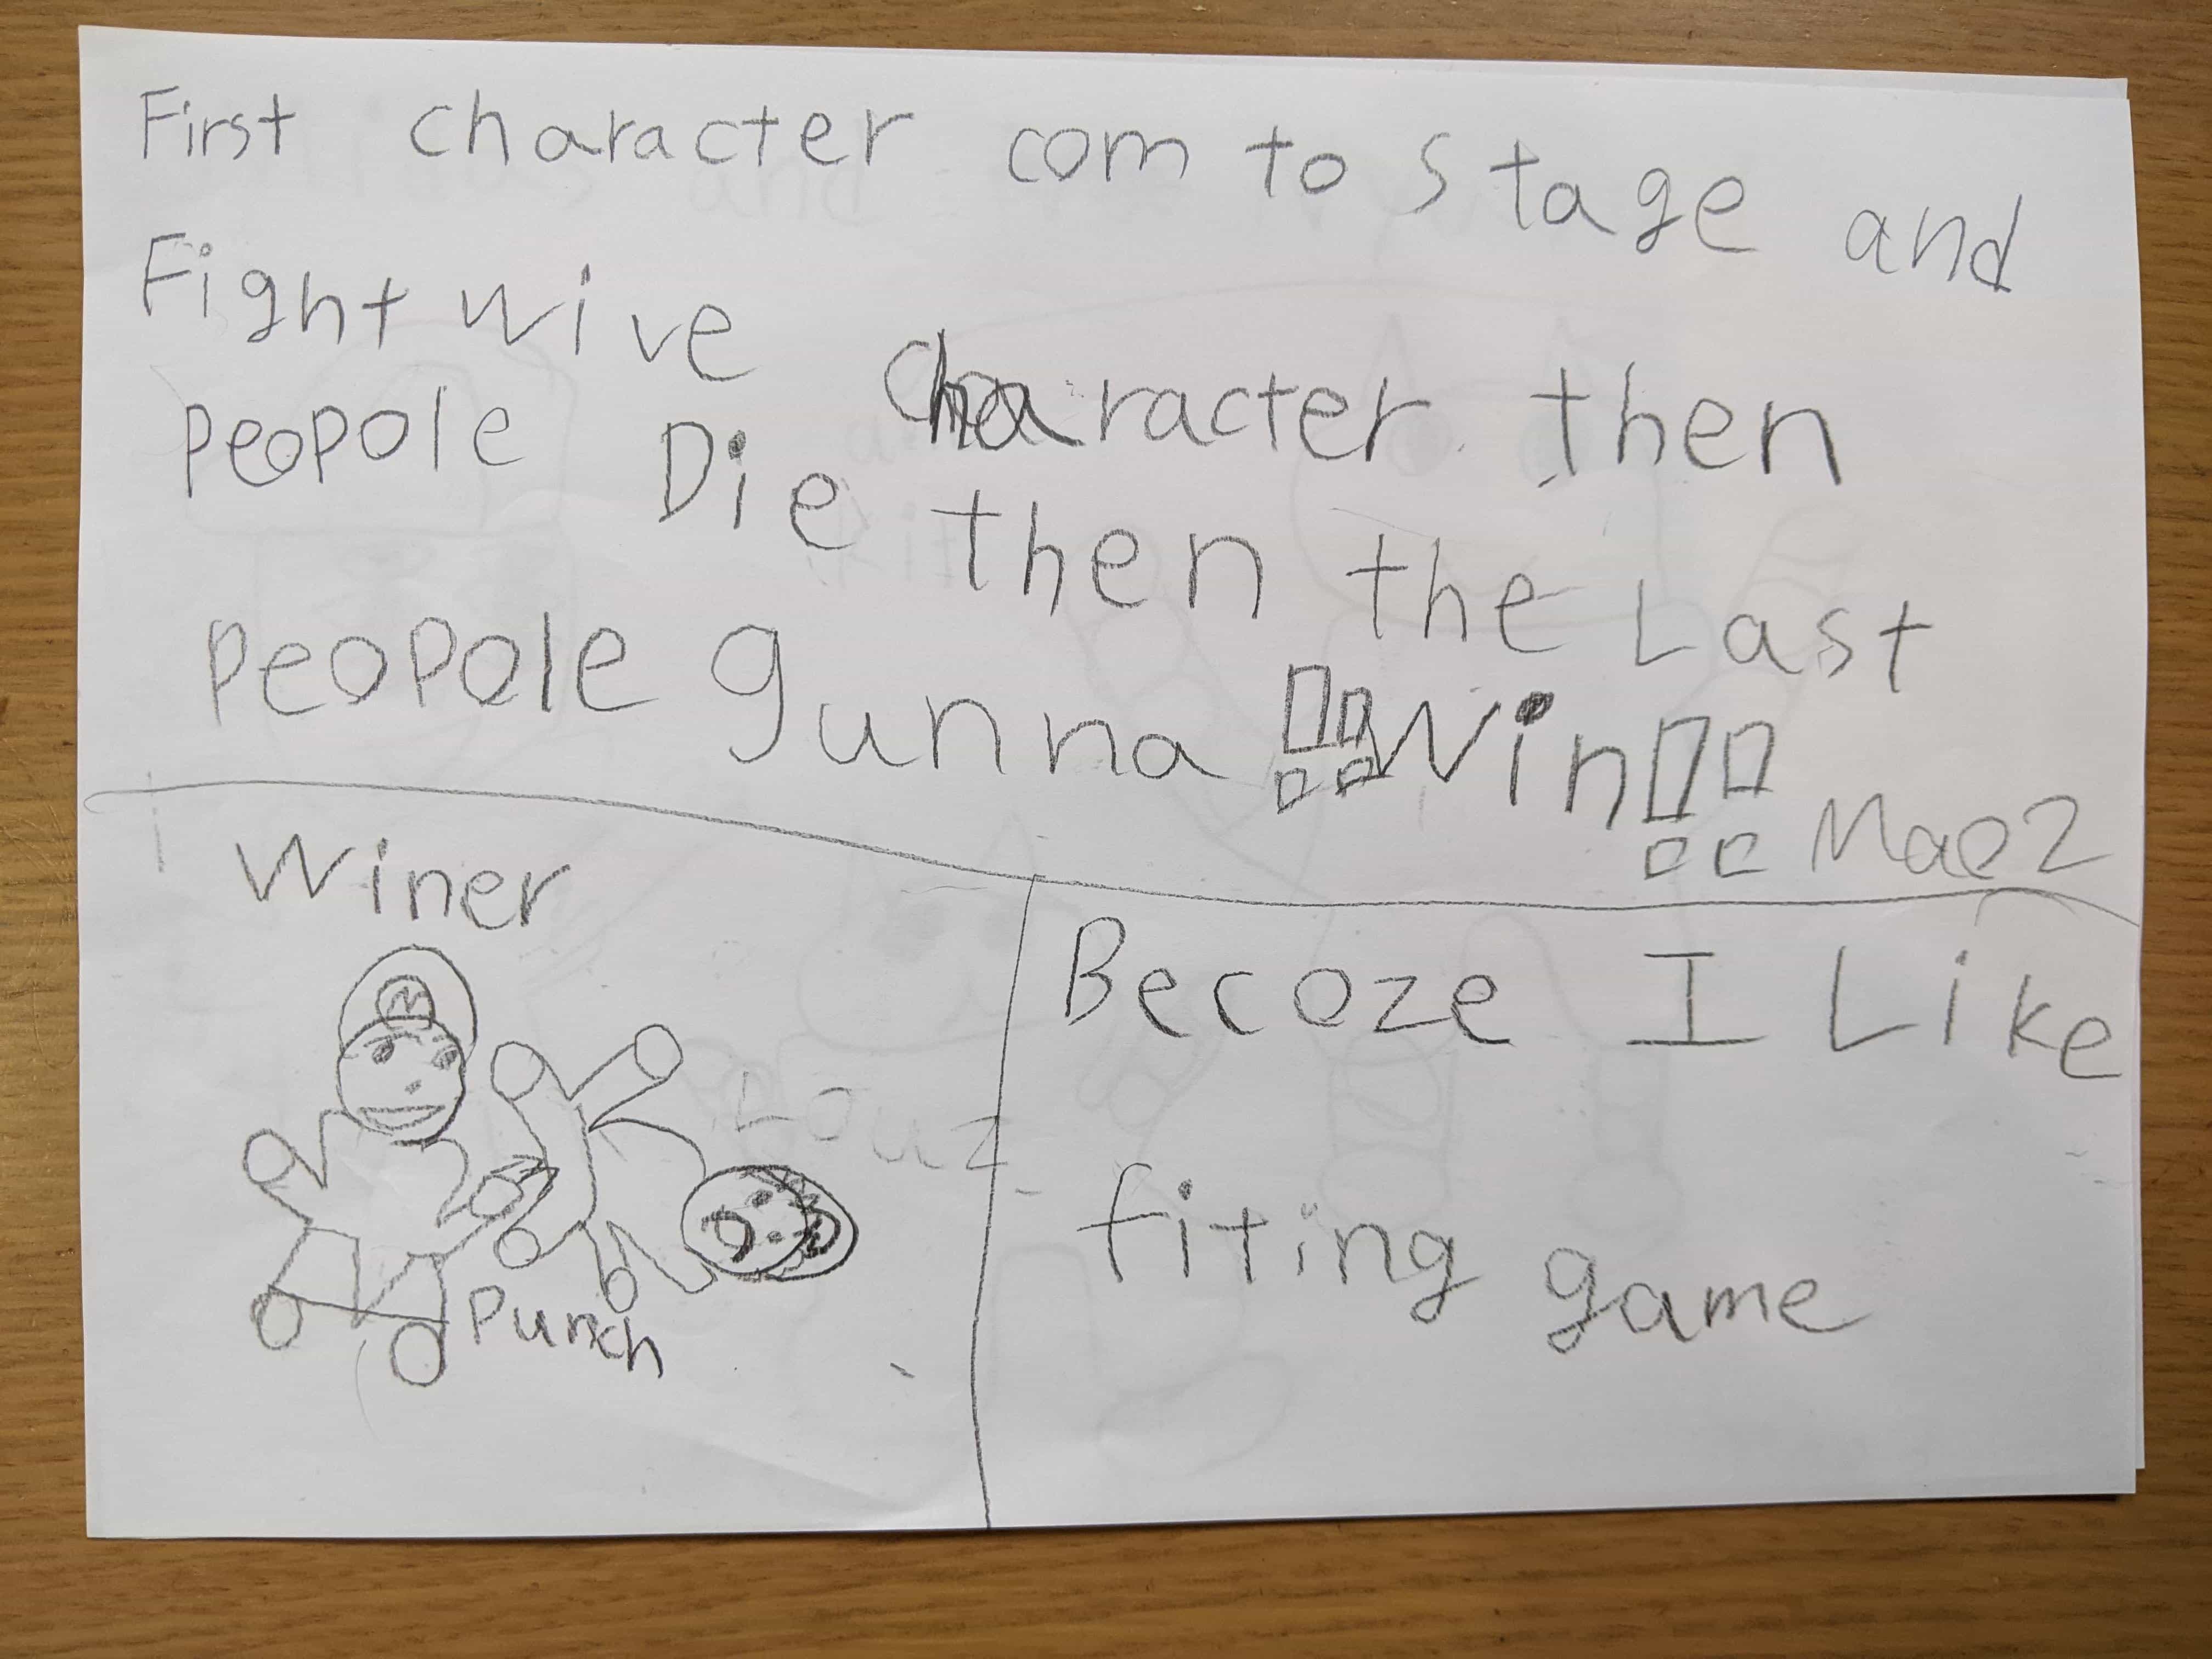 First character com to stage and
Fight wive character then
peopole Die then the Last
peopole gunna !!Win!!
Winer
M
Louz
Punch
Becoze I Like
fiting game